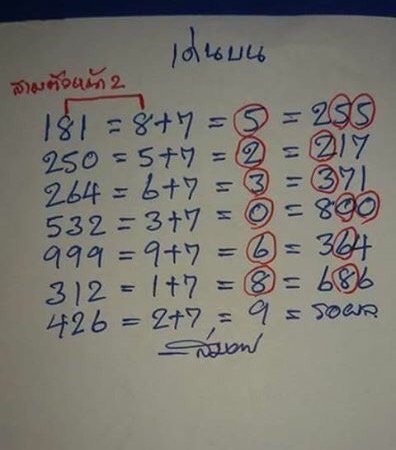 เด่นบน
สามตัวหน้า 2
181 = 8+7 = 5 = 255
250 = 5+7 = 2 = 217
264 = 6+7 = 3 = 371
532 = 3+7 = 0 = 800
999 = 9+7 = 6 = 364
312 = 1+7 = 8 = 686
426 = 2+7 = 9 = รอผล